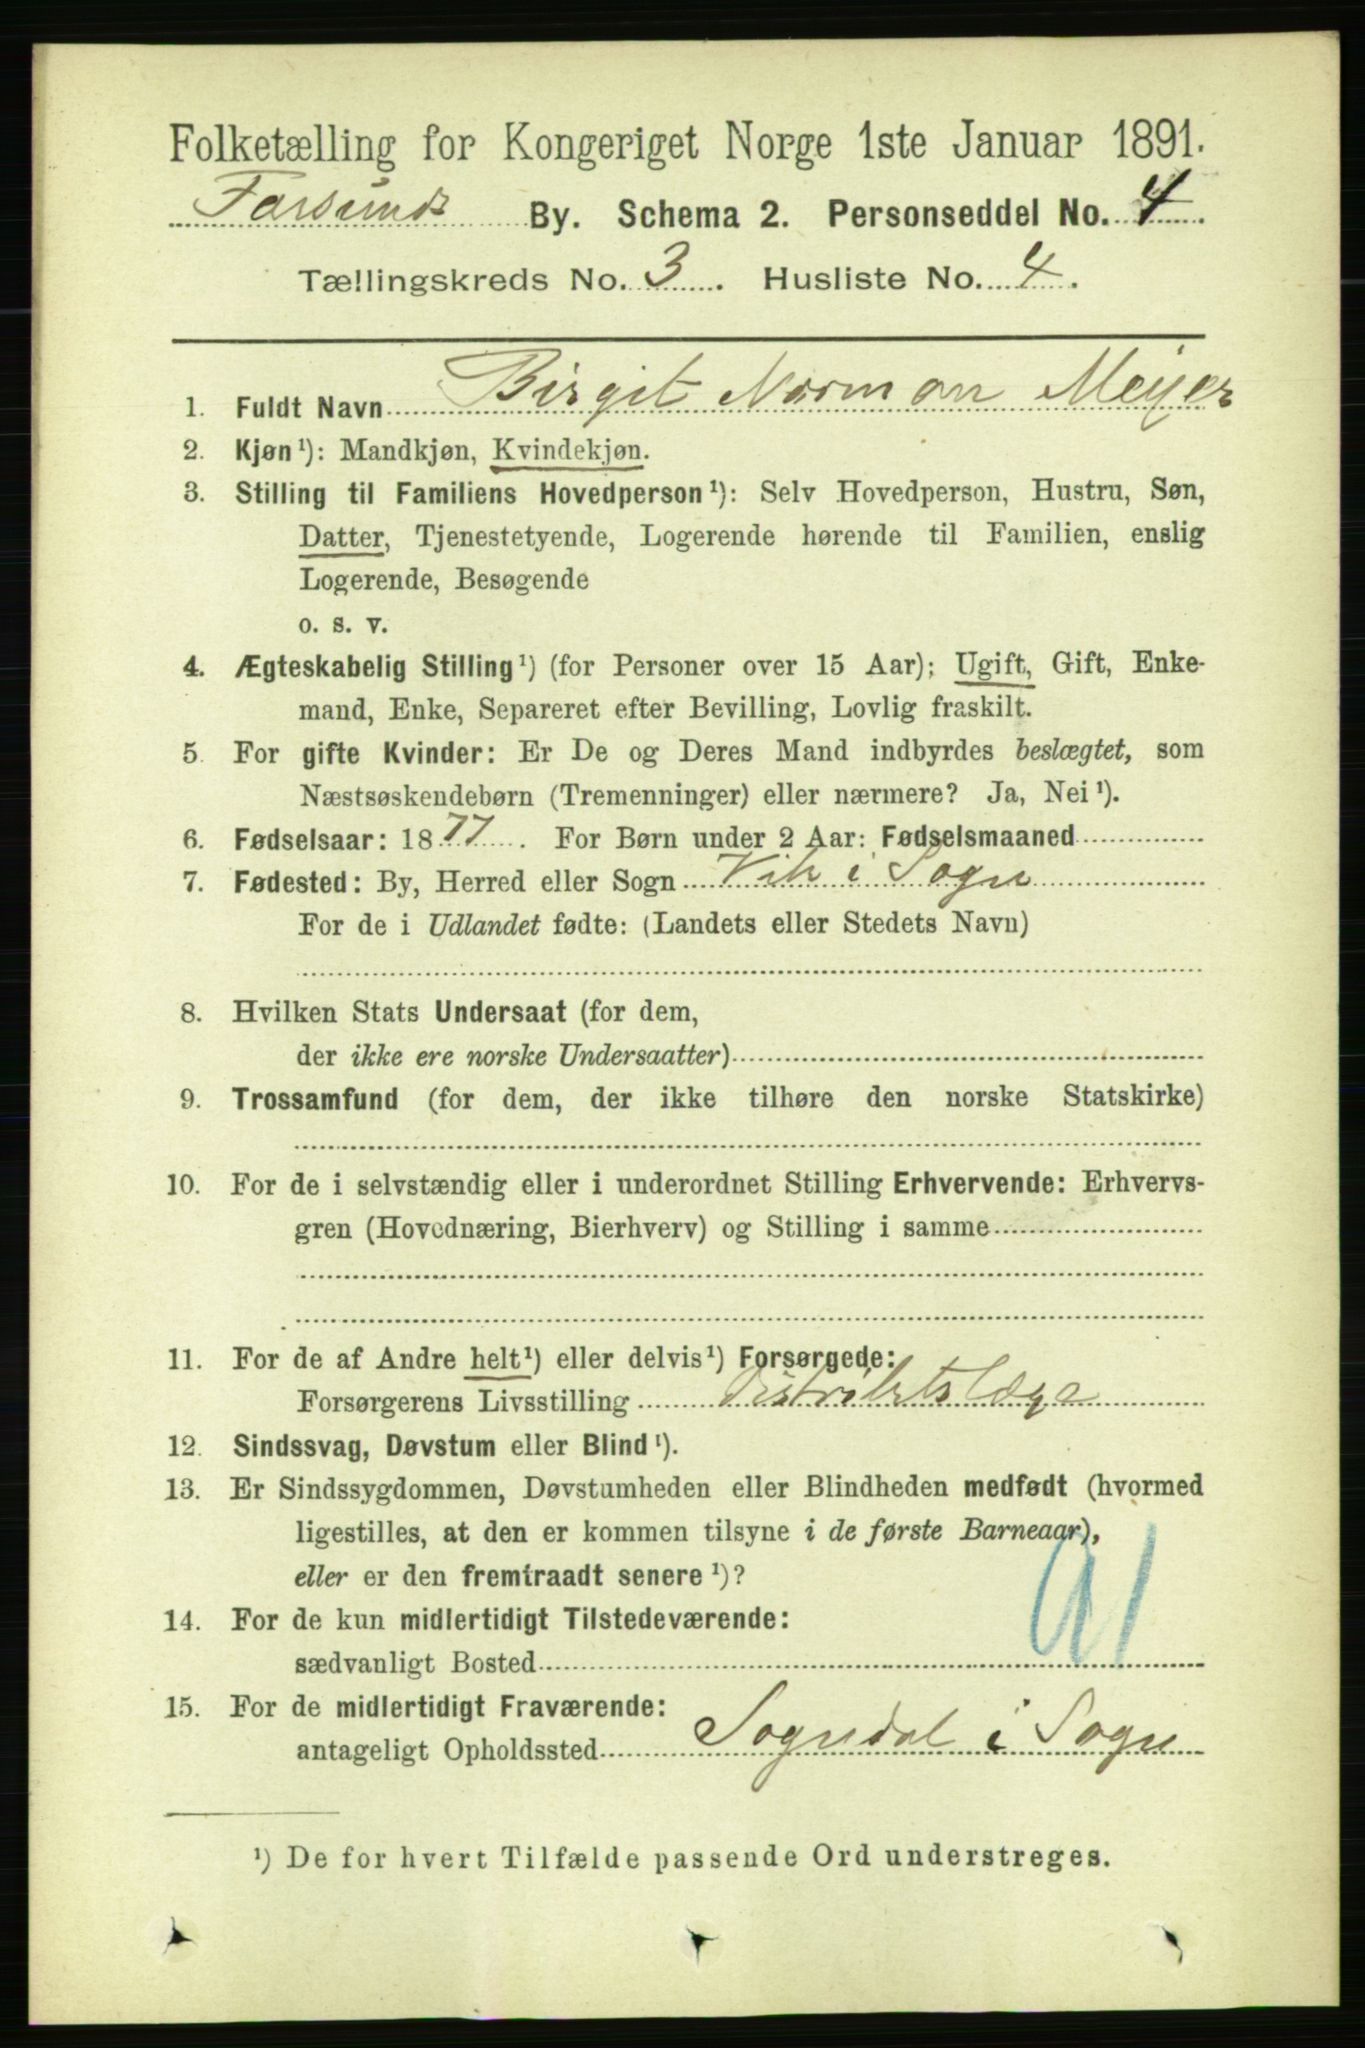 Folketælling for Kongeriget Norge 1ste Januar 1891.
Farsunds By. Schema 2. Personseddel No. 4.
Tællingskreds No. 3. Husliste No. 4.
1. Fuldt Navn Birgit Norman Meyer
2. Kjøn¹): Mandkjøn, Kvindekjøn.
3. Stilling til Familiens Hovedperson¹): Selv Hovedperson, Hustru, Søn,
Datter, Tjenestetyende, Logerende hørende til Familien, enslig
Logerende, Besøgende
o. s. v.
4. Ægteskabelig Stilling¹) (for Personer over 15 Aar): Ugift, Gift, Enke-
mand, Enke, Separeret efter Bevilling, Lovlig fraskilt.
5. For gifte Kvinder: Er De og Deres Mand indbyrdes beslægtet, som
Næstsøskendebørn (Tremenninger) eller nærmere? Ja, Nei¹).
6. Fødselsaar: 1877. For Børn under 2 Aar: Fødselsmaaned
7. Fødested: By, Herred eller Sogn Vik i Sogn
For de i Udlandet fødte: (Landets eller Stedets Navn)
8. Hvilken Stats Undersaat (for dem,
der ikke ere norske Undersaatter)
9. Trossamfund (for dem, der ikke tilhøre den norske Statskirke)
10. For de i selvstændig eller i underordnet Stilling Erhvervende: Erhvervs-
gren (Hovednæring, Bierhverv) og Stilling i samme
11. For de af Andre helt¹) eller delvis¹) Forsørgede:
Forsørgerens Livsstilling Distriktslæge
12. Sindssvag, Døvstum eller Blind¹).
13. Er Sindssygdommen, Døvstumheden eller Blindheden medfødt (hvormed
ligestilles, at den er kommen tilsyne i de første Barneaar),
eller er den fremtraadt senere¹)?
91
14. For de kun midlertidigt Tilstedeværende:
sædvanligt Bosted
15. For de midlertidigt Fraværende:
antageligt Opholdssted Sogndal i Sogn
¹) De for hvert Tilfælde passende Ord understreges.